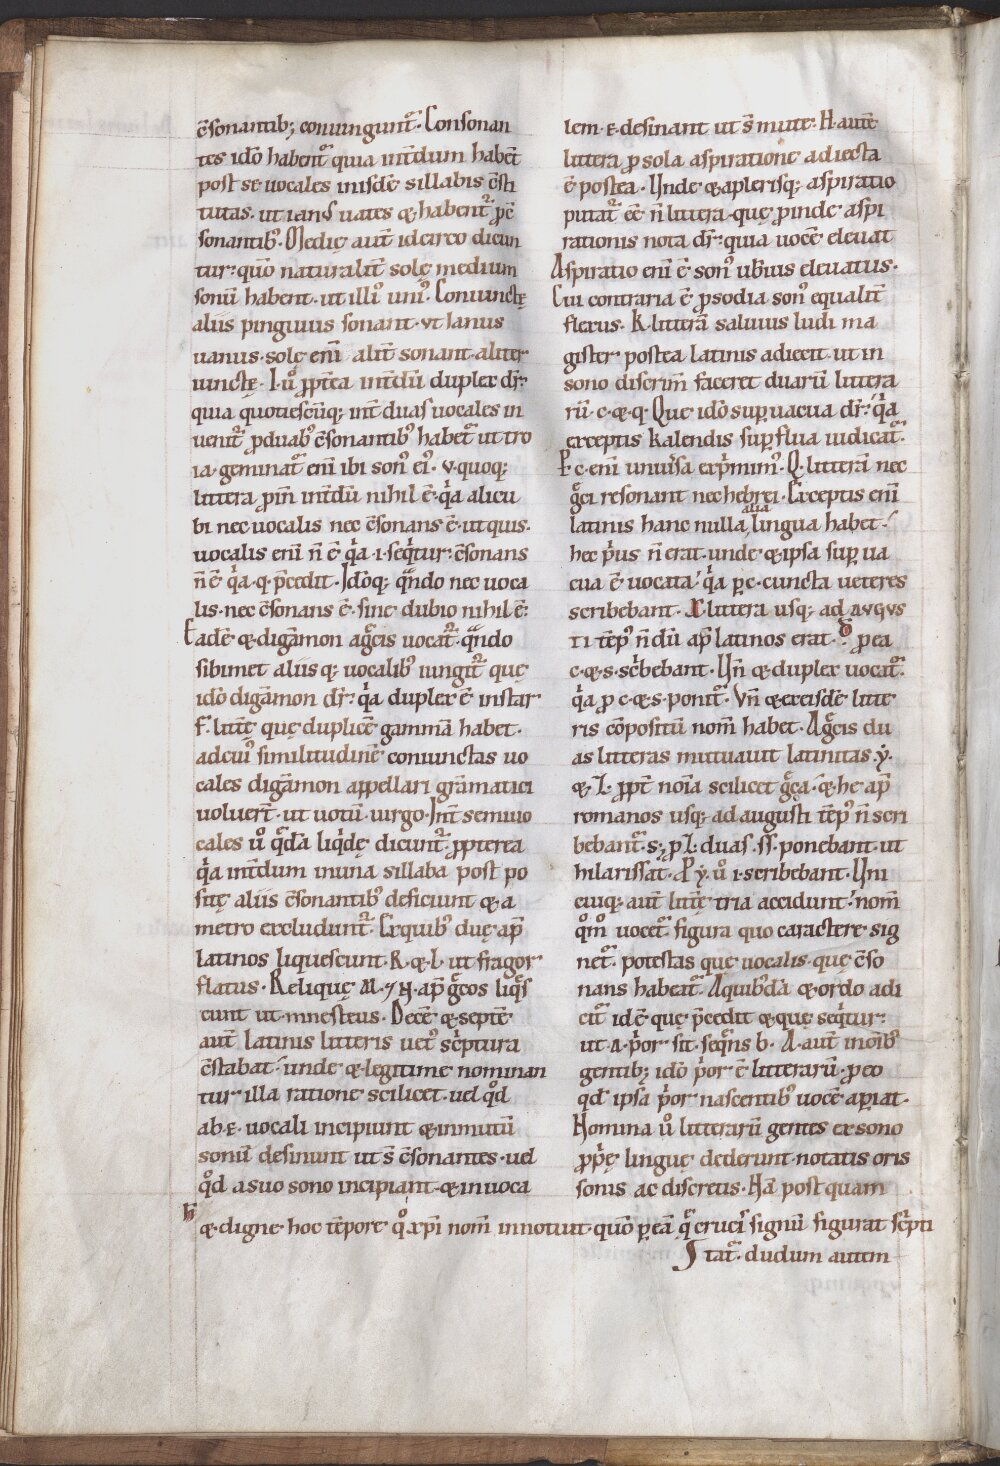 c̄sonantib; coniungunt᷑. Consonan
tes idō habent᷑ quia int̄dum habēt
post se uocales inisdē sillabis c̄sti
tutas. ut ianꝰ uates & habent᷑ ꝓ c̄
sonantibꝰ. Medię aut̄ idcirco dicun
tur: quō naturalit̄ solę medium
sonū habent. ut illiꝰ uniꝰ. Coniunctę
aliis pinguius sonant. vt Ianus
uanus. solę eni alit̄ sonant. aliter
iunctę. I. ů ꝓpt̄ea int̄dū duplex dr̄:
quia quotiescūq; int̄ duas uocales in
uenit᷑ ꝓ duabꝰ c̄sonantibꝰ habet᷑ ut tro
ia. geminat᷑ eni ibi sonꝰ eiꝰ. v. quoq;
littera ꝓin̄ int̄dū nihil ē. qͥa alicu
bi nec uocalis nec c̄sonans ē. ut quis.
uocalis eni n̄ ē qͥa .i. seqͥtur. c̄sonans
n̄ ē qͥa .q. p̄cedit. Idōq; qᷓndo nec uoca
lis. nec c̄sonans ē. sine dubio nihil ē:
Eadē & digāmon agͤcis uocat᷑. qᷓndo
sibimet aliisq; uocalibꝰ iungit᷑ quę
idō digāmon dr̄: qͥa duplex ē instar
F. litt̄ę quę duplicē gammā habet.
ad cuiꝰ similitudinē coniunctas uo
cales digāmon appellari grāmatici
uoluert̄. ut uotū. uirgo. Int̄ semiuo
cales ů qͦdā liqͥdę dicunt᷑. ꝓpterea
qͥa int̄dum in una sillaba post po
sitę aliis c̄sonantibꝰ deficiunt & a
metro excludunt᷑. Ex quibꝰ duę ap̄
latinos liquescunt. R. & L. ut fragor
flatus. Reliquę M. ⁊ N. ap̄ gͤcos liqͦs
cunt ut. mnesteus. Decē & septē
aut̄ latinis litteris uetꝰ sc̄ptura
c̄stabat. unde & legitime nominan
tur illa ratione scilicet. uel qͦd
ab .E. uocali incipiunt & in mutū
sonū desinunt ut s̄ c̄sonantes. uel
qͦd a suo sono incipiant. & in uoca
lem .E. desinant ut s̄ mute. H. autē
littera ꝓ sola aspiratione adiecta
ē postea. Unde & a plerisq; aspiratio
putat᷑ eē n̄ littera. quę ꝓinde aspi
rationis nota dr̄: quia uocē eleuat
Aspiratio eni ē sonꝰ uberius eleuatus.
Cui contraria ē ꝓsodia sonꝰ equalit̄
flexus. K. litterā saluius ludi ma
gister postea latinis adiecit. ut in
sono discrim̄ faceret duarū littera
rū .c. & .q. Que idō supuacua dr̄: qͥa
exceptis kalendis supflua iudicat᷑.
P. c. eni uniuersa exp̄mimꝰ. Q. litterā nec
gͤci resonant nec hebrei. Exceptis eni
latinis hanc nulla alia lingua habet.
hec pͥus n̄ erat. unde & ipsa supua
cua ē uocata. qͥa p .c. cuncta ueteres
scribebant. X. littera usq; ad AVGVS
TI tēpꝰ n̄dū ap̄ latinos erat. ꝓ ea
.c. & .s. sc̄bebant. Un̄ & duplex uocat᷑.
qͥa ꝓ .c. & .s. ponit᷑. Vn̄ & ex eisdē litte
ris cōpositū nom̄ habet. A gͤcis du
as litteras mutuauit latinitas .ẏ.
& .Z. ꝓpt̄ noīa scilicet gͤca. & he ap̄
romanos usq; ad augusti tēpꝰ n̄ scri
bebant᷑. s; ꝓ .Z. duas .ss. ponebant. ut
hilarissat. P y. ů i. scribebant. Uni
cuiq; aut̄ litt̄ę tria accidunt. nom̄
qͦm̊ uocet᷑ figura quo caractere sig
net᷑. potestas que uocalis. quę c̄so
nans habeat᷑. A quibꝰdā & ordo adi
cit᷑ idē quę p̄cedit & quę seqͥtur.
ut .A. pͥor sit. seqͣns b. A. aut̄ in oīb̄ꝰ
gentib; idō pͥor ē litterarū. ꝓ eo
qd̄ ipsa pͥor nascentibꝰ uocē apiat.
Nomina ů litterarū gentes ex sono
ꝓpͥę linguę dederunt. notatis oris
sonis ac discretis. Nā postquam
& digne hoc tēpore qͦ xp̄i nom̄ innotuit. quō p eā qͣ cruciꝰ signū figurat sc̄pti
tat᷑. dudum autem